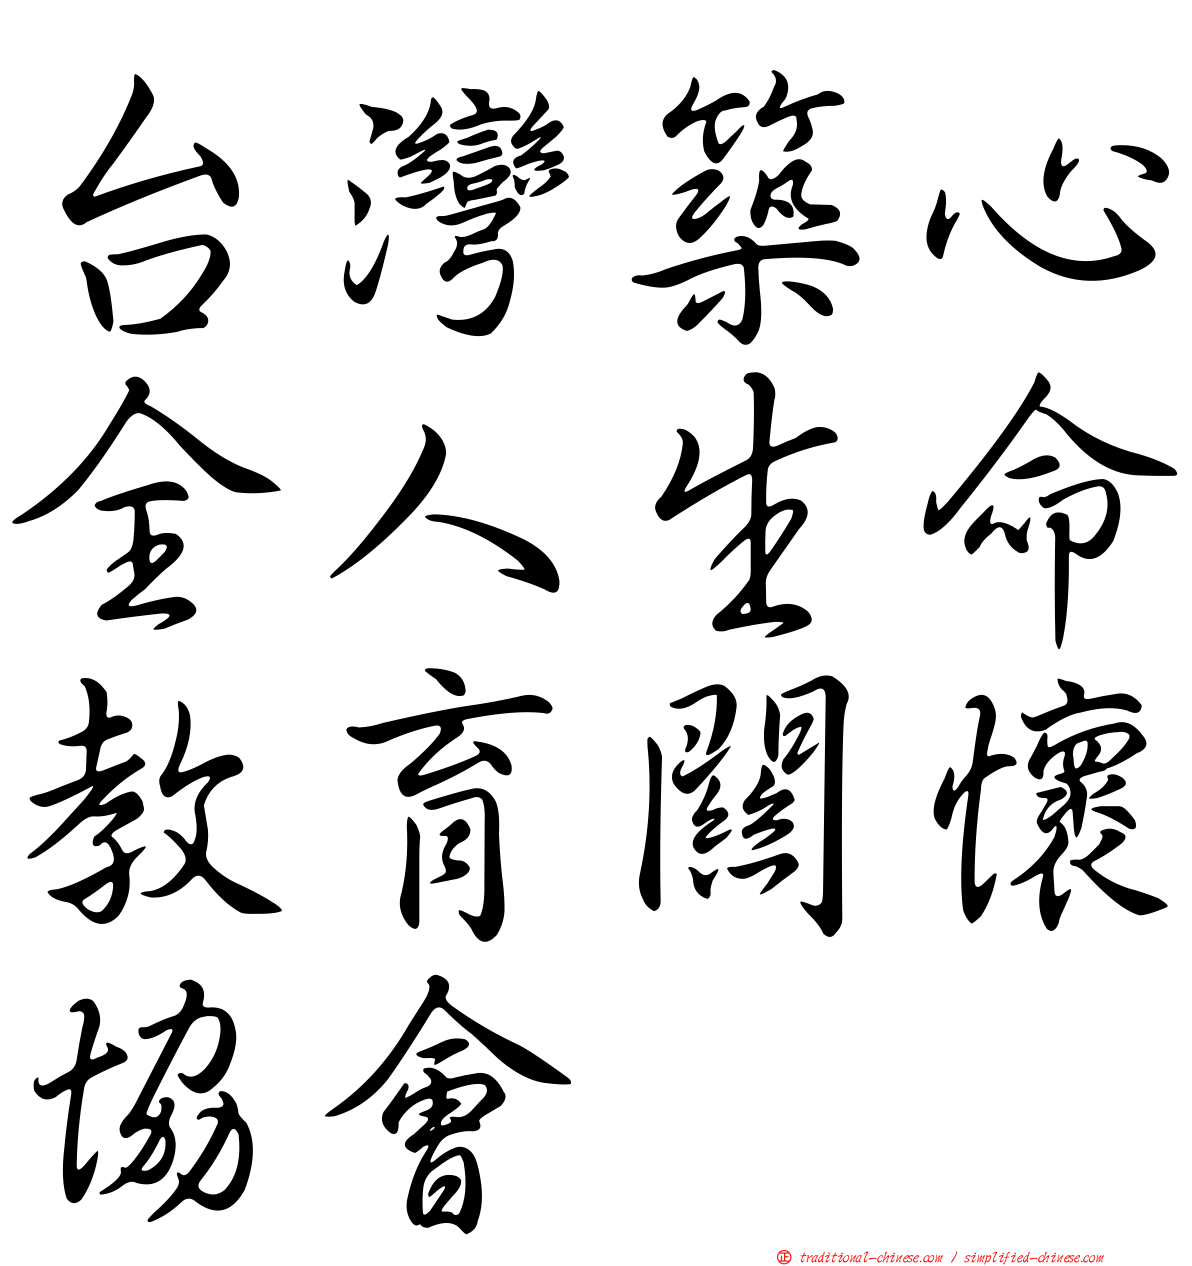 台灣築心
全人生命
教育關懷
協會
正 traditional-chinese.com / simplified-chinese.com